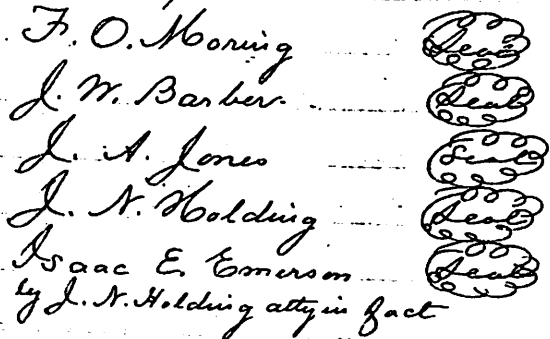 F. O. Moring (Seal)
J. W. Barber. (Seal)
J. A. Jones (Seal)
J. N. Holding (Seal)
Isaac E. Emerson (Seal)
by J. N. Holding atty in fact